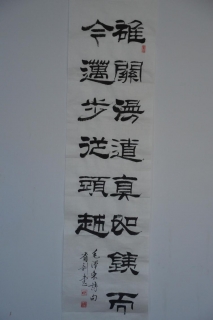 雄關漫道真如銕而
今邁步從頭越
毛澤東詩句